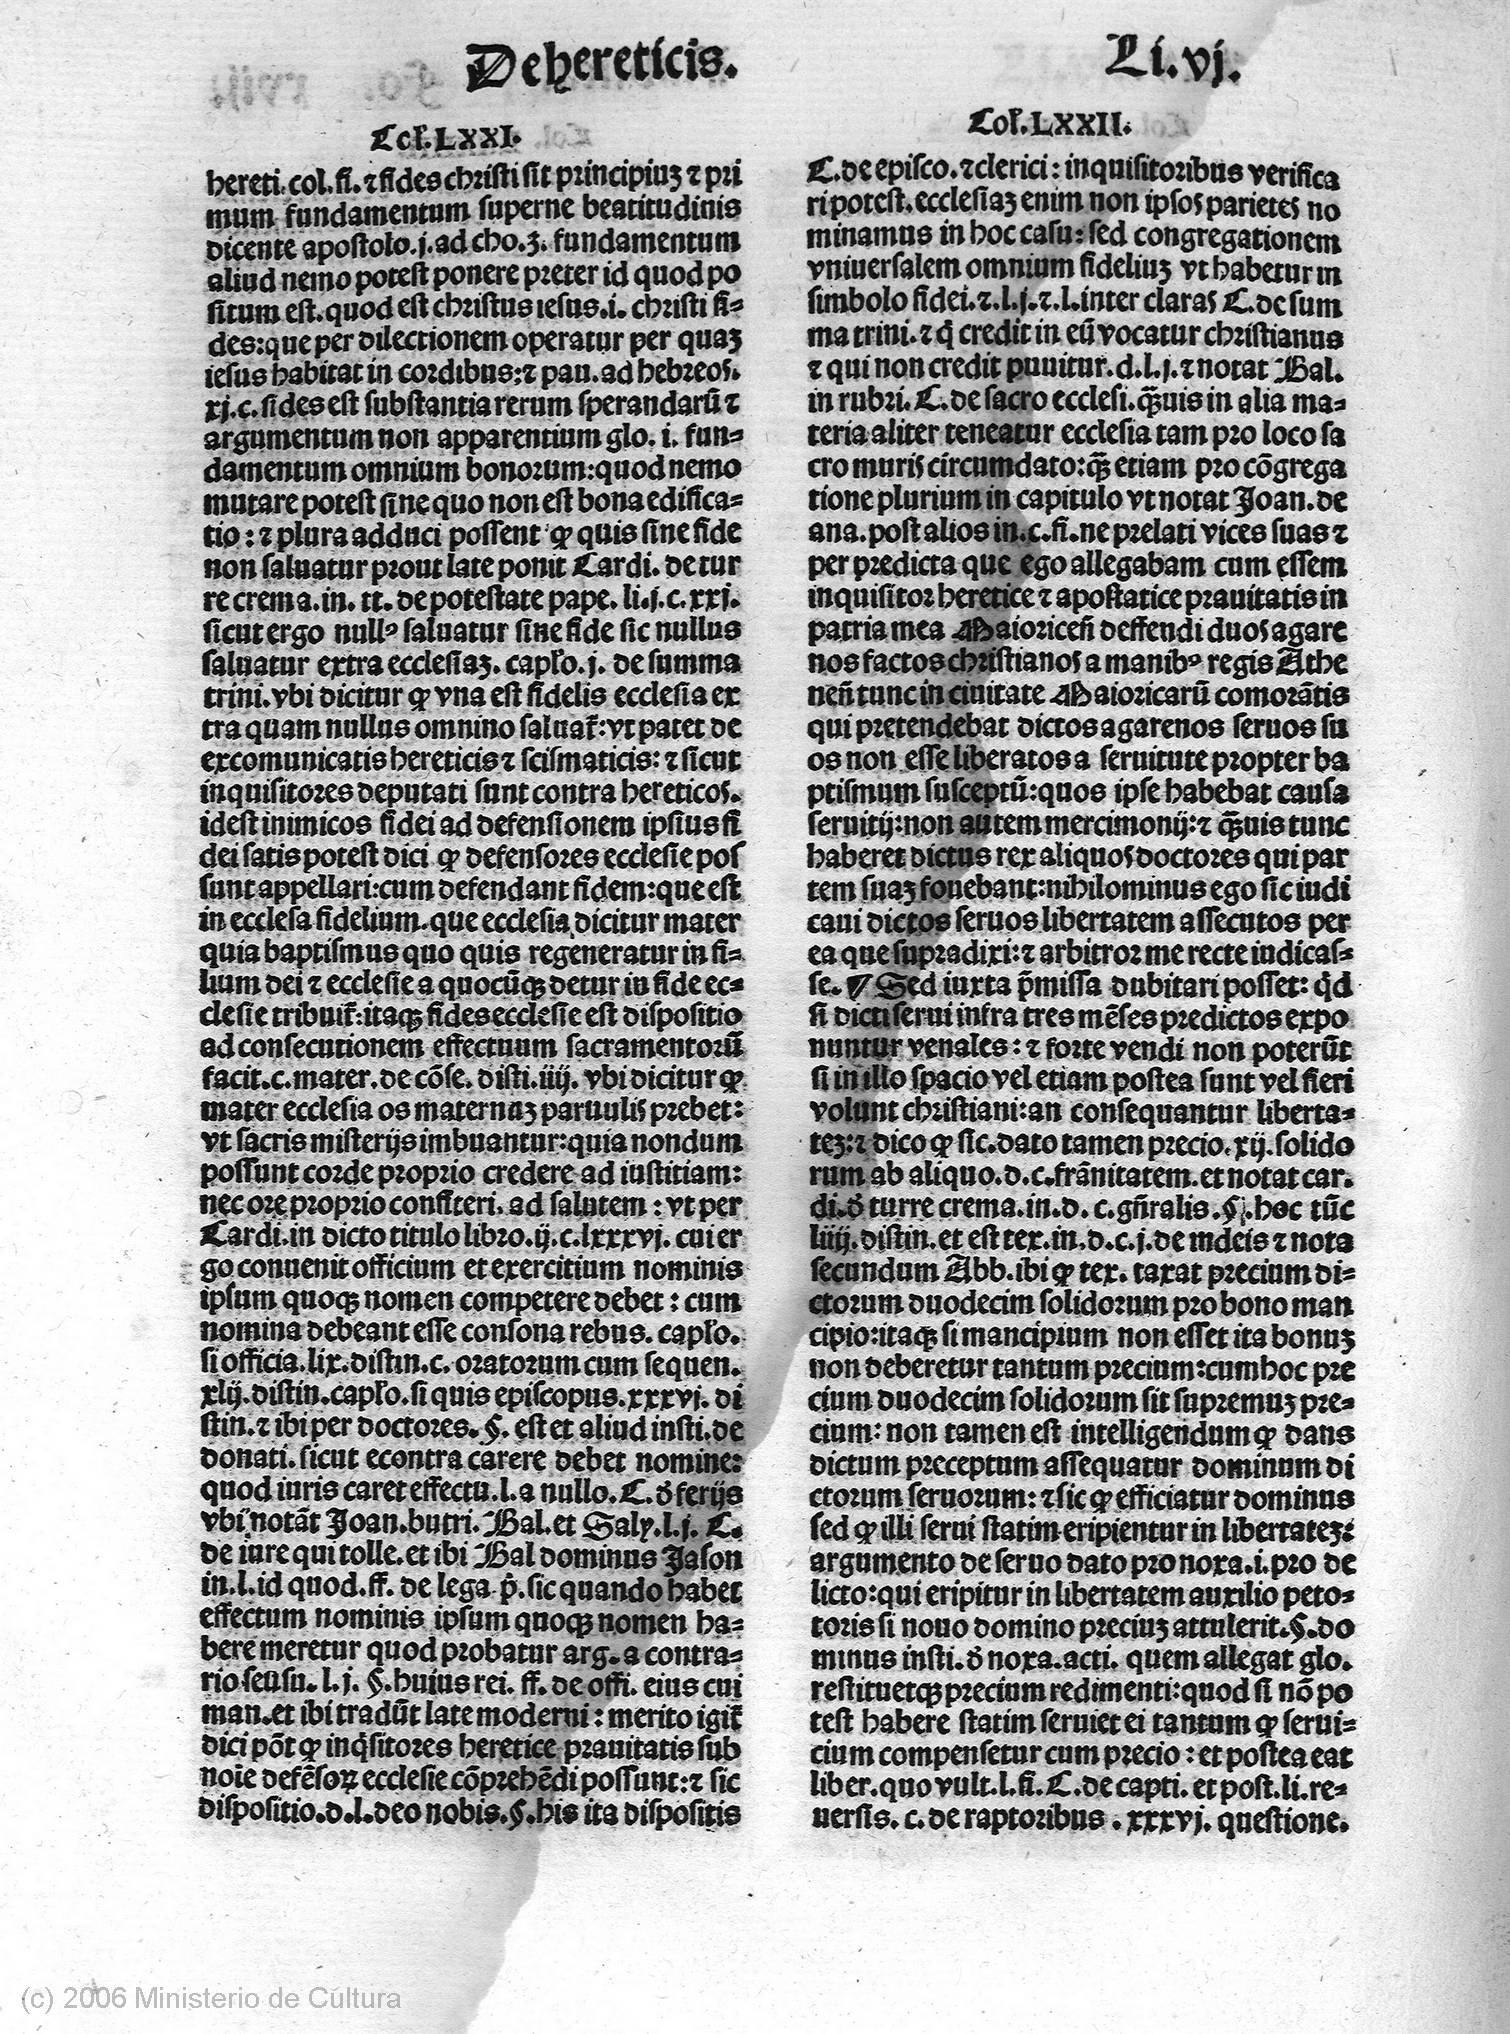 De hereticis.
Li.vj.
Col.LXXI.
hereti.col.fi.⁊ fides christi sit principiuʒ ⁊ pri
mum fundamentum superne beatitudinis
dicente apostolo.j.ad cho.3. fundamentum
aliud nemo potest ponere preter id quod po
situm est.quod est christus iesus.i. christi fi-
des:que per dilectionem operatur per quaʒ
iesus habitat in cordibus:⁊ pau.ad hebreos.
xj.c.fides est substantia rerum sperandarū ⁊
argumentum non apparentium glo. i. fun-
damentum omnium bonorum:quod nemo
mutare potest sine quo non est bona edifica-
tio:⁊ plura adduci possent ꝙ quis sine fide
non saluatur prout late ponit Cardi. de tur
re crema.in. tt. de potestate pape. li.j.c.xxj.
sicut ergo nullꝰ saluatur sine fide sic nullus
saluatur extra ecclesiaʒ. capło.j. de summa
trini.vbi dicitur ꝙ vna est fidelis ecclesia ex
tra quam nullus omnino saluat̃:vt patet de
excomunicatis hereticis ⁊ scismaticis:⁊ sicut
inquisitores deputati sunt contra hereticos.
idest inimicos fidei ad defensionem ipsius fi
dei satis potest dici ꝙ defensores ecclesie pos
sunt appellari:cum defendant fidem:que est
in ecclesa fidelium.que ecclesia dicitur mater
quia baptismus quo quis regeneratur in fi-
lium dei ⁊ ecclesie a quocūqꝫ detur in fide ec-
clesie tribuit̃:itaqꝫ fides ecclesie est dispositio
ad consecutionem effectuum sacramentorū
facit.c.mater.de cōse.disti.iiij. vbi dicitur ꝙ
mater ecclesia os maternuʒ paruulis prebet:
vt sacris misterijs imbuantur:quia nondum
possunt corde proprio credere ad iustitiam:
nec ore proprio confiteri. ad salutem : vt per
Cardi.in dicto titulo libro.ij.c.lxxxvj. cui er
go conuenit officium et exercitium nominis
ipsum quoqꝫ nomen competere debet : cum
nomina debeant esse consona rebus. capło.
si officia.lix.distin.c. oratorum cum sequen.
xlij.distin.capło.si quis episcopus.xxxvj. di
stin.⁊ ibi per doctores.§. est et aliud insti.de
donati.sicut econtra carere debet nomine:
quod iuris caret effectu.l.a nullo.C.ð ferijs
vbi notāt Joan.butri.Bal.et Saly.l.j. C.
de iure qui tolle.et ibi Bal dominus Jason
in.l.id quod.ff. de lega p̄.sic quando habet
effectum nominis ipsum quoqꝫ nomen ha-
bere meretur quod probatur arg.a contra-
rio seusu.l.j.§.huius rei. ff. de offi. eius cui
man.et ibi tradūt late moderni : merito igit̃
dici pōt ꝙ inq̇sitores heretice prauitatis sub
noīe defēsoꝝ ecclesie cōprehēdi possunt:⁊ sic
dispositio.d.l.deo nobis.§.his ita dispositis
Col.LXXII.
C.de episco.⁊ clerici: inquisitoribus verifica
ri potest.ecclesiaʒ enim non ipsos parietes no
minamus in hoc casu: sed congregationem
vniuersalem omnium fideliuʒ vt habetur in
simbolo fidei.⁊.l.j.⁊.l.inter claras C.de sum
ma trini.⁊ q̇ credit in eū vocatur christianus
⁊ qui non credit puuitur.d.l.j.⁊ notat Bal.
in rubri.C.de sacro ecclesi.q̄ꝫuis in alia ma-
teria aliter teneatur ecclesia tam pro loco sa
cro muris circumdato:q̄ꝫ etiam pro cōgrega
tione plurium in capitulo vt notat Joan.de
ana.post alios in.c.fi.ne prelati vices suas ⁊
per predicta que ego allegabam cum essem
inquisitor heretice ⁊ apostatice prauitatis in
patria mea Maioriceñ deffendi duos agare
nos factos christianos a manibꝰ regis Athe
neñ tunc in ciuitate Maioricarū comorātis
qui pretendebat dictos agarenos seruos su
os non esse liberatos a seruitute propter ba
ptismum susceptū:quos ipse habebat causa
seruitij:non autem mercimonij:⁊ q̄ꝫuis tunc
haberet dictus rex aliquos doctores qui par
tem suaʒ fouebant:nihilominus ego sic iudi
caui dictos seruos libertatem assecutos per
ea que supradixi:⁊ arbitror me recte iudicas-
se.¶ Sed iuxta p̄missa dubitari posset: q̇d
si dicti serui infra tres mēses predictos expo
nuntur venales:⁊ forte vendi non poterūt
si in illo spacio vel etiam postea sunt vel fieri
volunt christiani:an consequantur liberta-
teʒ:⁊ dico ꝙ sic.dato tamen precio.xij.solido
rum ab aliquo.d.c.frānitatem.et notat car.
di.ð turre crema.in.d. c.gñralis.§.hoc tūc
liiij.distin.et est tex.in.d.c.j.de iudeis ⁊ nota
secundum Abb.ibi ꝙ tex. taxat precium di-
ctorum duodecim solidorum pro bono man
cipio:itaqꝫ si mancipium non esset ita bonuʒ
non deberetur tantum precium:cum hoc pre
cium duodecim solidorum sit supremuʒ pre-
cium: non tamen est intelligendum ꝙ dans
dictum preceptum assequatur dominum di
ctorum seruorum:⁊ sic ꝙ efficiatur dominus
sed ꝙ illi serui statim eripientur in libertateʒ:
argumento de seruo dato pro noxa.i.pro de
licto:qui eripitur in libertatem auxilio peto-
toris si nouo domino preciuʒ attulerit.§.do
minus insti.ð noxa.acti. quem allegat glo.
restituetqꝫ precium redimenti:quod si nō po
test habere statim seruiet ei tantum ꝙ serui-
cium compensetur cum precio:et postea eat
liber.quo vult.l.fi.C.de capti.et post.li.re-
uersis. c.de raptoribus.xxxvj. questione.
(c) 2006 Ministerio de Cultura